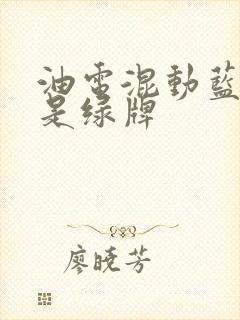 油電混動藍
是绿牌
廖曉芳